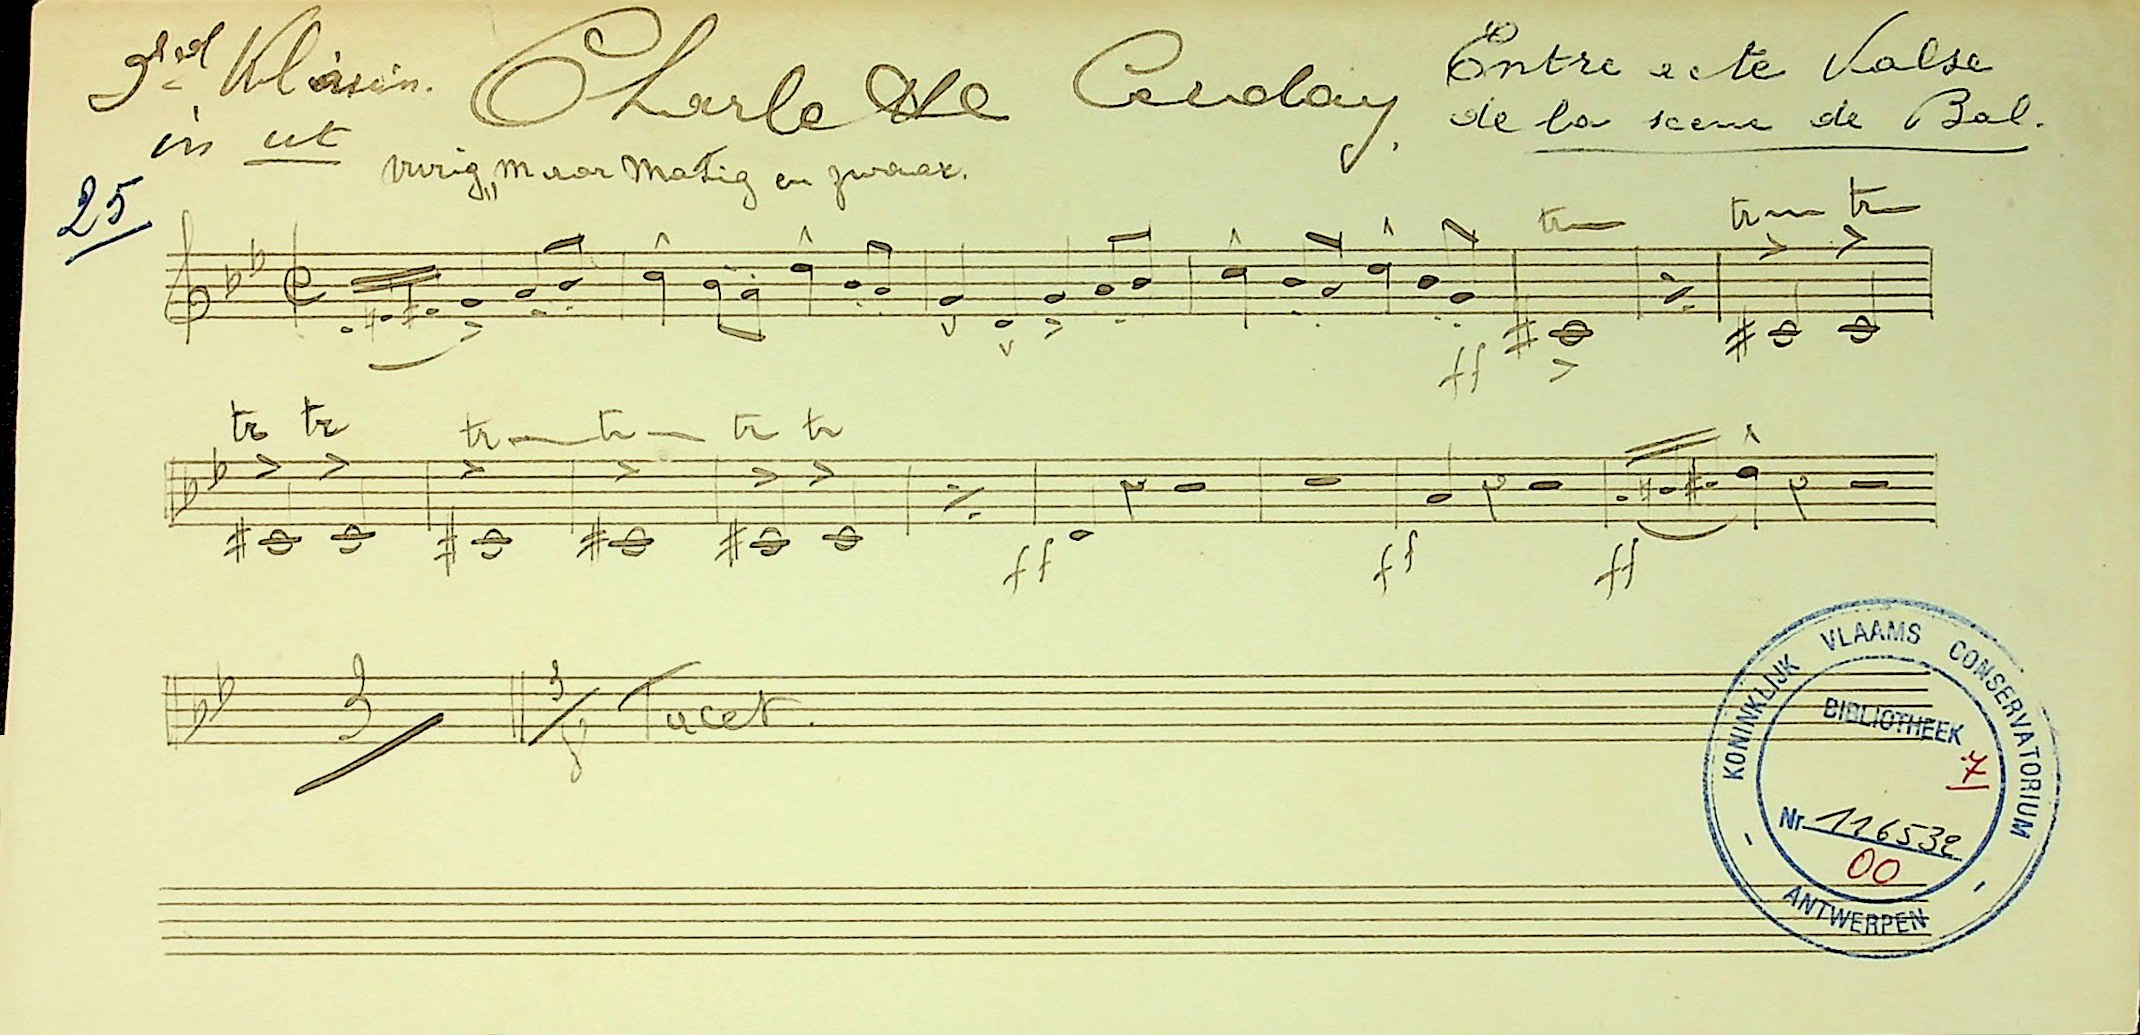 3de Klarin. Charlotte Corday, Entre acte Valse
in ut de la scene de Bal.
Vurig, maar matig en zwaar.
25
tr tr tr
ff
tr tr tr tr tr tr
ff ff ff
3 3/8 Tacet.
KONINKLIJK VLAAMS CONSERVATORIUM
BIBLIOTHEEK
7
Nr 116532
00
ANTWERPEN